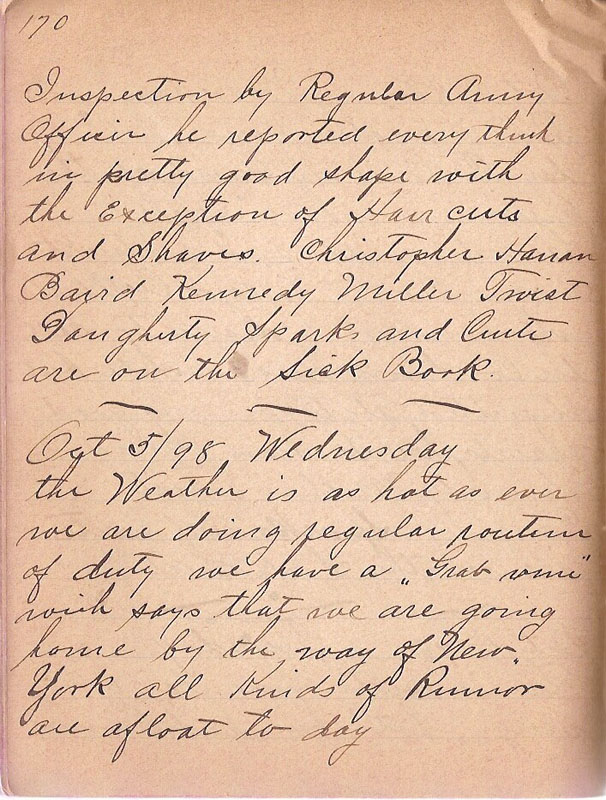 170
Inspection by Regular Army
Officer he reported every think
in pretty good shape with
the Exception of Hair cuts
and Shaves. Christopher Hanan
Baird Kennedy Miller Twist
Daugherty Sparks and Cute
are on the Sick Book.
Oct 5/98 Wednesday
the Weather is as hot as ever
we are doing regular routine
of duty we have a „Grab vine"
wich says that we are going
home by the way of New
York all Kinds of Rumor
are afloat to day